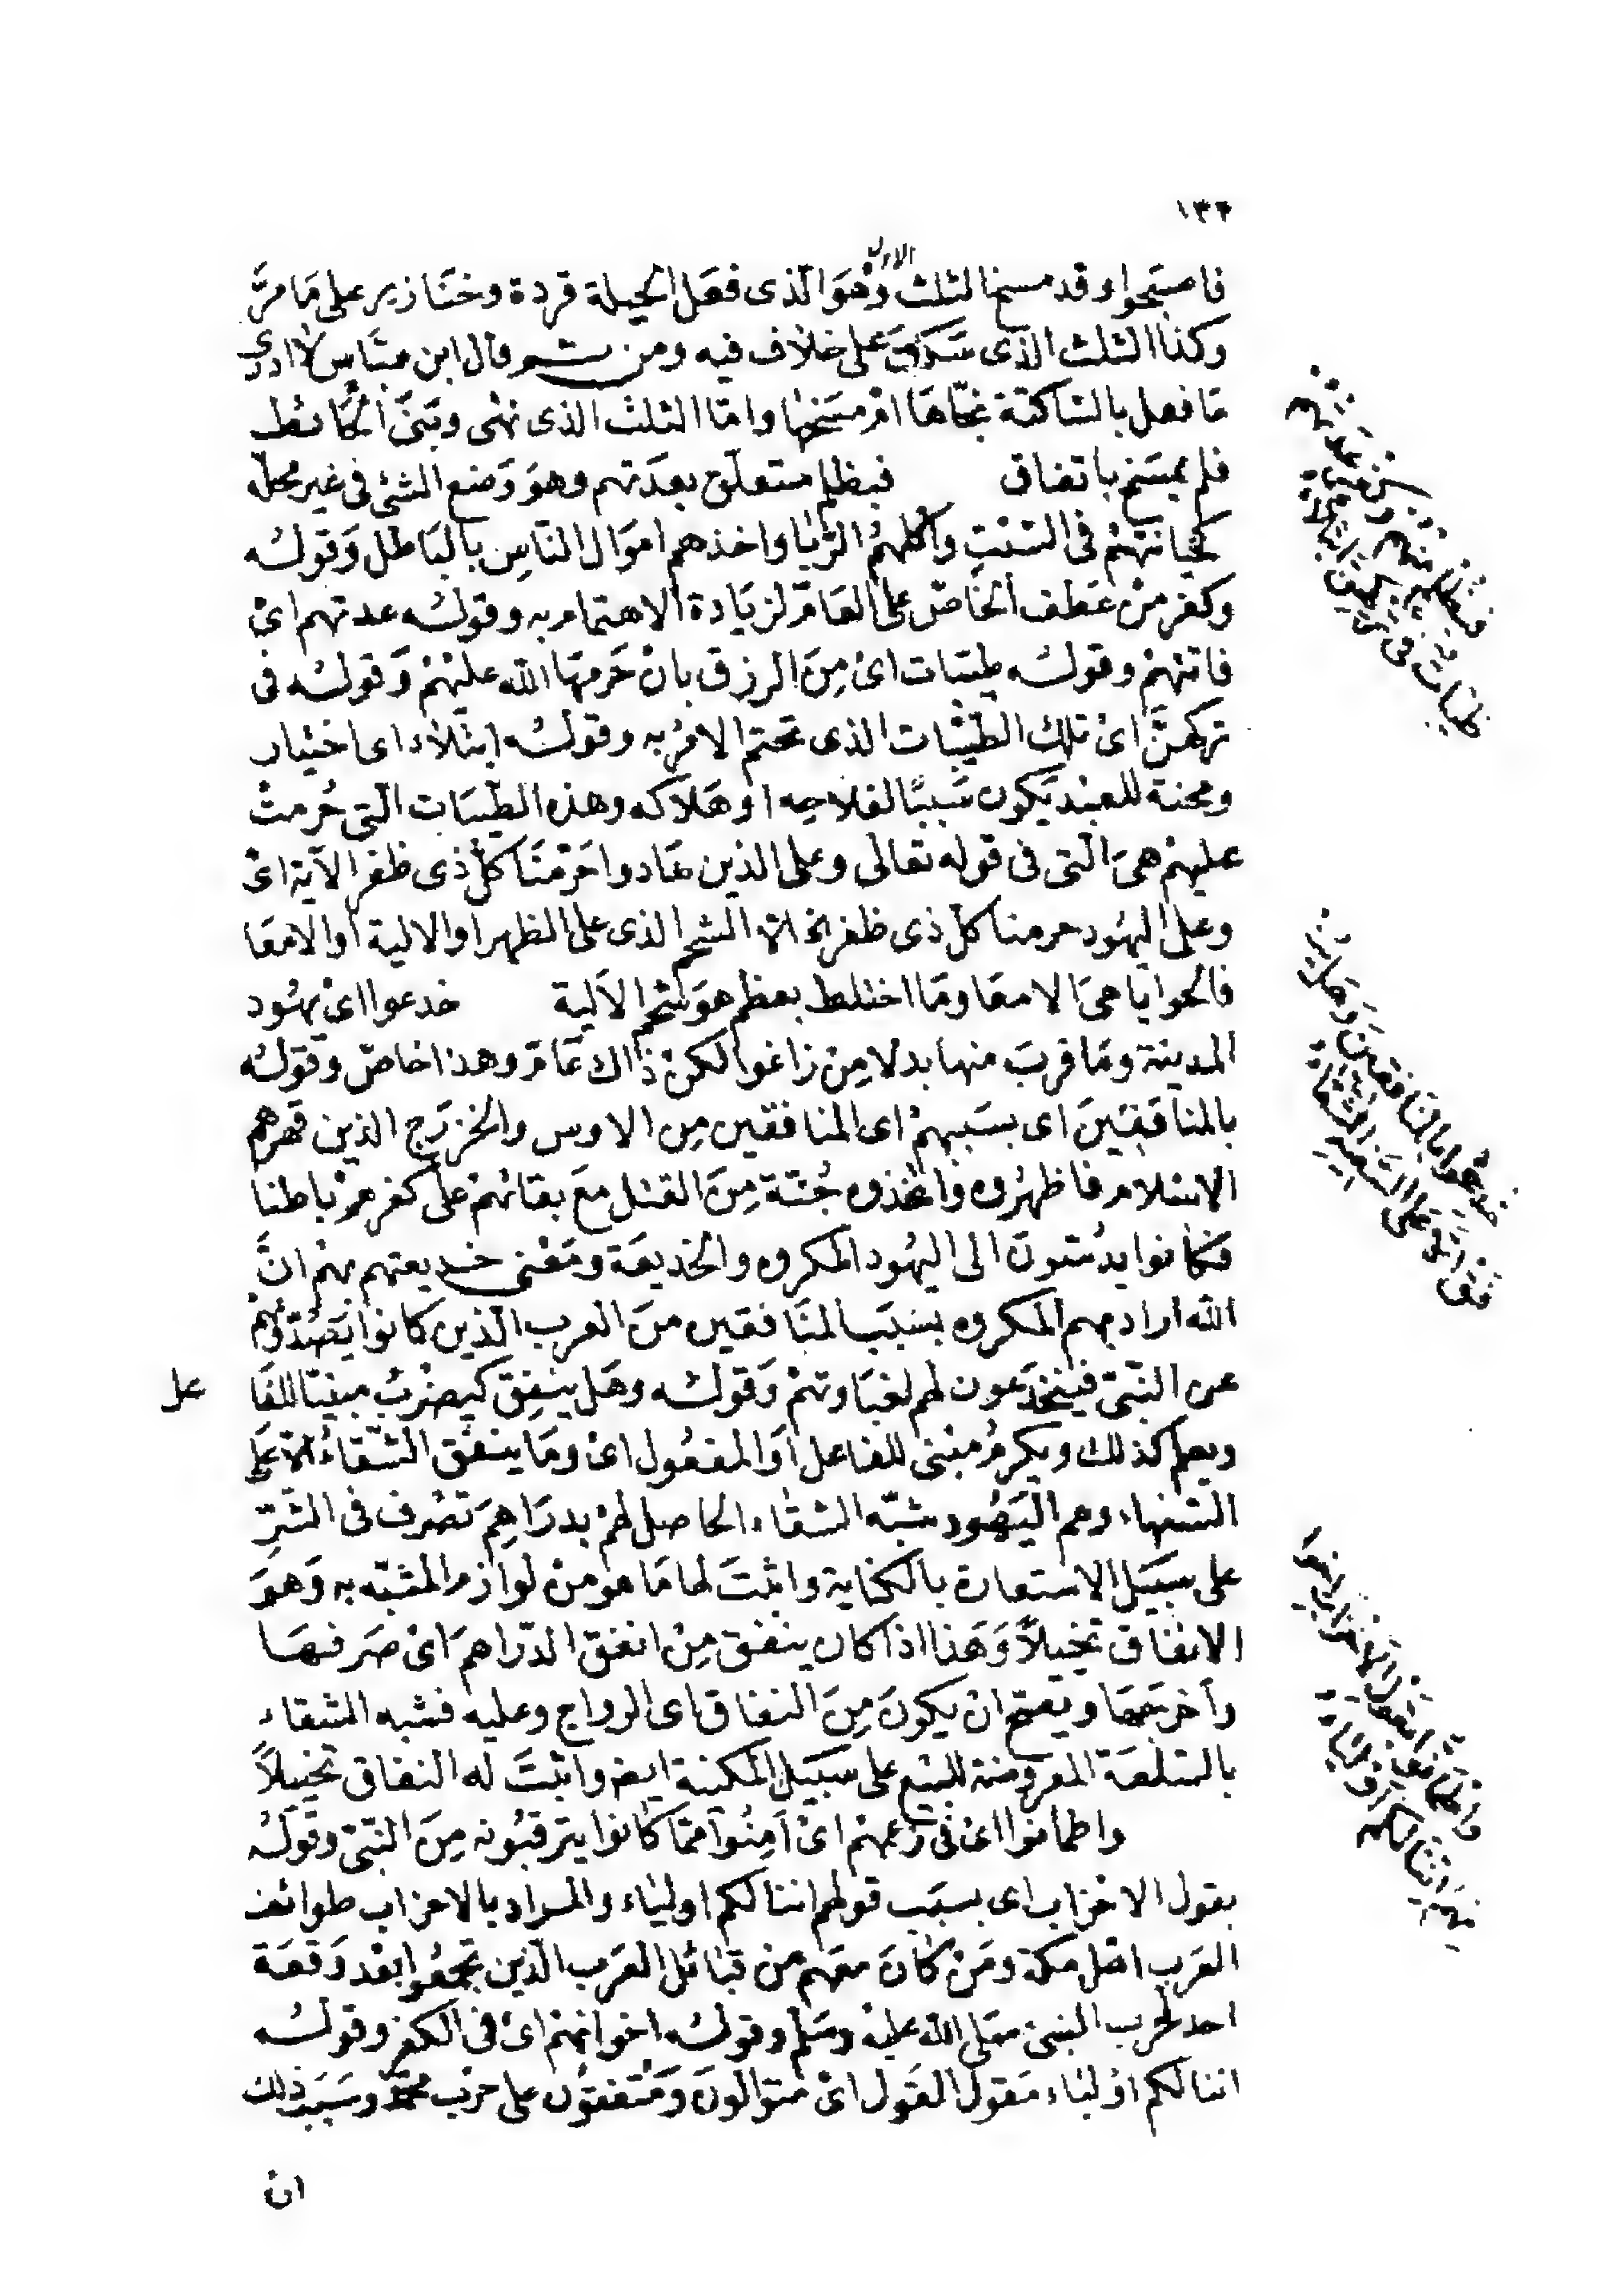 ١٣٤
فاصبحوا وقد مسخ الثلث الاول وهو الذى فعل الحيلة قردة وخنازير على ما مرّ
وكذا الثلث الذى سكت على خلاف فيه ومن ثم قال ابن عباس لا ادرى
ما فعل بالساكتة نجاها ام مسخها واما الثلث الذى نهى وبنى الحائط
فلم يمسخ باتفاق فبظلم متعلق بعدتهم وهو وضع الشئ فى غير محله
كخيانتهم فى السبت واكلهم الربا واخذهم اموال الناس بالباطل وقوله
وكفر من عطف الخاص على العام لزيادة الاهتمام به وقوله عدتهم اى
فاتتهم وقوله طيبات اى من الرزق بان حرمها الله عليهم وقوله فى
تركهنّ اى تلك الطيبات الذى تحتم الامر به وقوله ابتلاء اى اختبار
ومحنة للعبد يكون سببا لفلاحه او هلاكه وهذه الطيبات التى حرمت
عليهم هى التى فى قوله تعالى وعلى الذين هادوا حرمنا كل ذى ظفر الآية اى
وعلى اليهود حرمنا كل ذى ظفر الخ الا الشحم الذى على الظهر او الالية او الامعا
فالحوايا هى الامعا وما اختلط بعظم هو شحم الالية خدعوا اى يهود
المدينة وما قرب منها بدلا من زاغوا لكن ذاك عام وهذا خاص وقوله
بالمنافقين اى بسببهم اى المنافقين من الاوس والخزرج الذين قهرهم
الاسلام فاظهروه واتخذوه جنة من القتل مع بقائهم على كفرهم باطنا
فكانوا يدسّون الى اليهود المكروه والخديعة ومعنى خديعتهم بهم انّ
الله اراد بهم المكروه بسبب المنافقين من العرب الذين كانوا يصدونهم
عن النبى فينخدعون لهم لغباوتهم وقوله وهل ينفق كيضرب مبنيا للفا عل
ويعلم كذلك ويكرم مبنى للفاعل او المفعول اى وما ينفق الشقاء الا على
السفهاء وهم اليهود شبه الشقاء الحاصل لهم بدراهم تصرف فى الشرّ
على سبيل الاستعارة بالكناية واثبت لها ما هو من لوازم المشبه به وهو
الانفاق تخييلا وهذا اذا كان ينفق من انفق الدراهم اى صرفها
واخرجها ويصح ان يكون من النفاق اى الرواج وعليه فشبه الشقاء
بالسلعة المعروضة للبيع على سبيل المكنية ايضا واثبت له النفاق تخييلاً
واطمانوا اى فى زعمهم اى امنوا مما كانوا يترقبونه من النبى وقوله
بقول الاحزاب اى بسبب قولهم اننا لكم اولياء والمراد بالاحزاب طوائف
العرب اهل مكة ومن كان معهم من قبائل العرب الذين تجمعوا بعد وقعة
احد لحرب النبى صلى الله عليه وسلم وقوله اخوانهم اى فى الكفر وقوله
اننا لكم اولياء مقول القول اى متوالون ومتفقون على حرب محمد وسبب ذلك
ان
فبظلم منهم وكفر عدتهم
طيبات فى تركهن ابتلاء
خدعوا بالمنافقين وهل ينـ
ـفق الا على السفيه الشقاء
واطمأنوا بقول الاحزاب اخوا
نهم اننا لكم اولياء